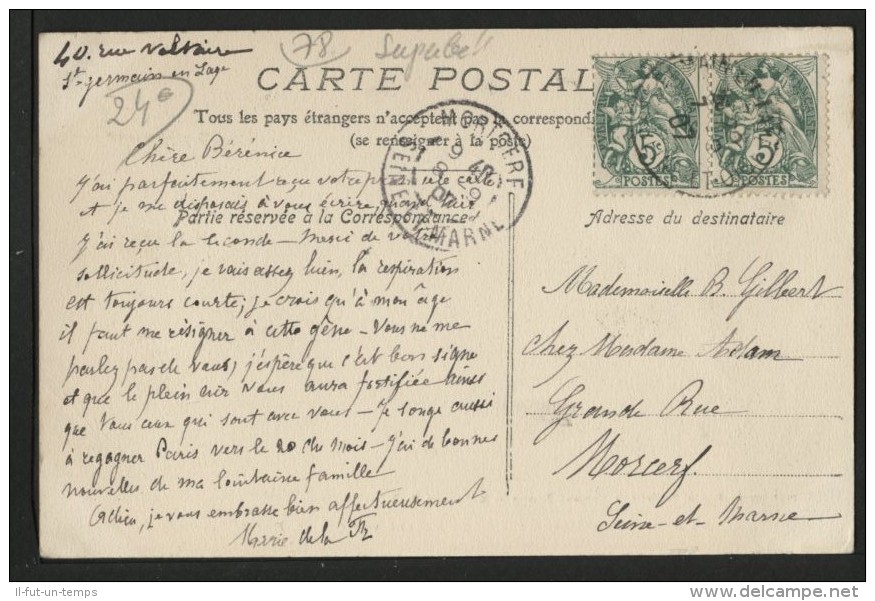 40. rue Voltaire
St germain en Laye
78
Superbe!!
24€
CARTE POSTALE
Tous les pays étrangers n'acceptent pas la correspondance
(se renseigner à la poste)
MORTCERF
SEINE-ET-MARNE
07
5c
POSTES
5c
POSTES
Chère Bérénice
J'ai parfaitement reçu votre première carte
et je me disposais à vous écrire quand
Partie réservée à la Correspondance
Adresse du destinataire
j'ai reçu la seconde – Merci de votre
sollicitude, je vais assez bien, la respiration
est toujours courte; je crois qu'à mon âge
il faut me résigner à cette gêne – Vous ne me
parlez pas de vous, j'espère que c'est bon signe
et que le plein air vous aura fortifiée ainsi
que tous ceux qui sont avec vous – Je songe aussi
à regagner Paris vers le 20 du mois – J'ai de bonnes
nouvelles de ma lointaine famille
Adieu, je vous embrasse bien affectueusement
Marie de la
Mademoiselle B. Gilbert
chez Madame Adam
Grande Rue
Morcerf.
Seine-et-Marne
Il-fut-un-temps
delcampe.net